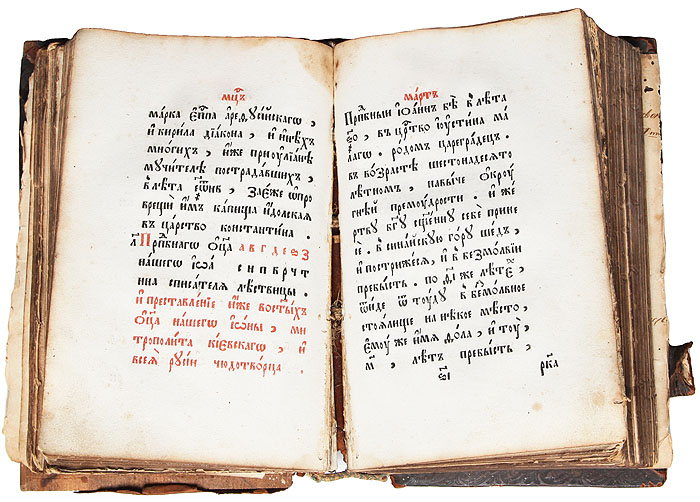 мц҇ъ
марка еп҇па арефусїискагѡ ,
и кирила дїакона , и инѣхъ
многихъ , иже приоулїанѣ
мучителѣ пострадавшихъ ,
в лѣта
врещи имъ капища идолская
въ царство константина .
л҃ Прп҇бнагѡ ѻц҃а а в г д е ѕ з
нашегѡ іѡа с н п в р ч т
нна списателя лѣствицы .
и преставленїе иже во ст҃ыхъ
ѻц҃а нашегѡ іѡны , ми
трополита кїевскагѡ , и
всея̀ русїи чюдотворца .
мартъ
Прп҇бныи іѡаннъ бѣ в лѣта
въ цр҇тво іоустина ма
лагѡ . родомъ цареградецъ .
въ возрастѣ шестонадесято
лѣтномъ , навыче ѻкроу
гнѣи премоудрости . и же
ртву бг҃у сщ҃енну себѐ прине
се . в синаискую гору шедъ ,
и пострижеся , и в безмолвїи
пребысть . по лѣтѣ
ѿиде ѿтоуду в безмолвное
стоялище на нѣкое мѣсто ,
емоу же имя ѳола , и тоу
м҃ , лѣтъ пребысть ,
рк҃а